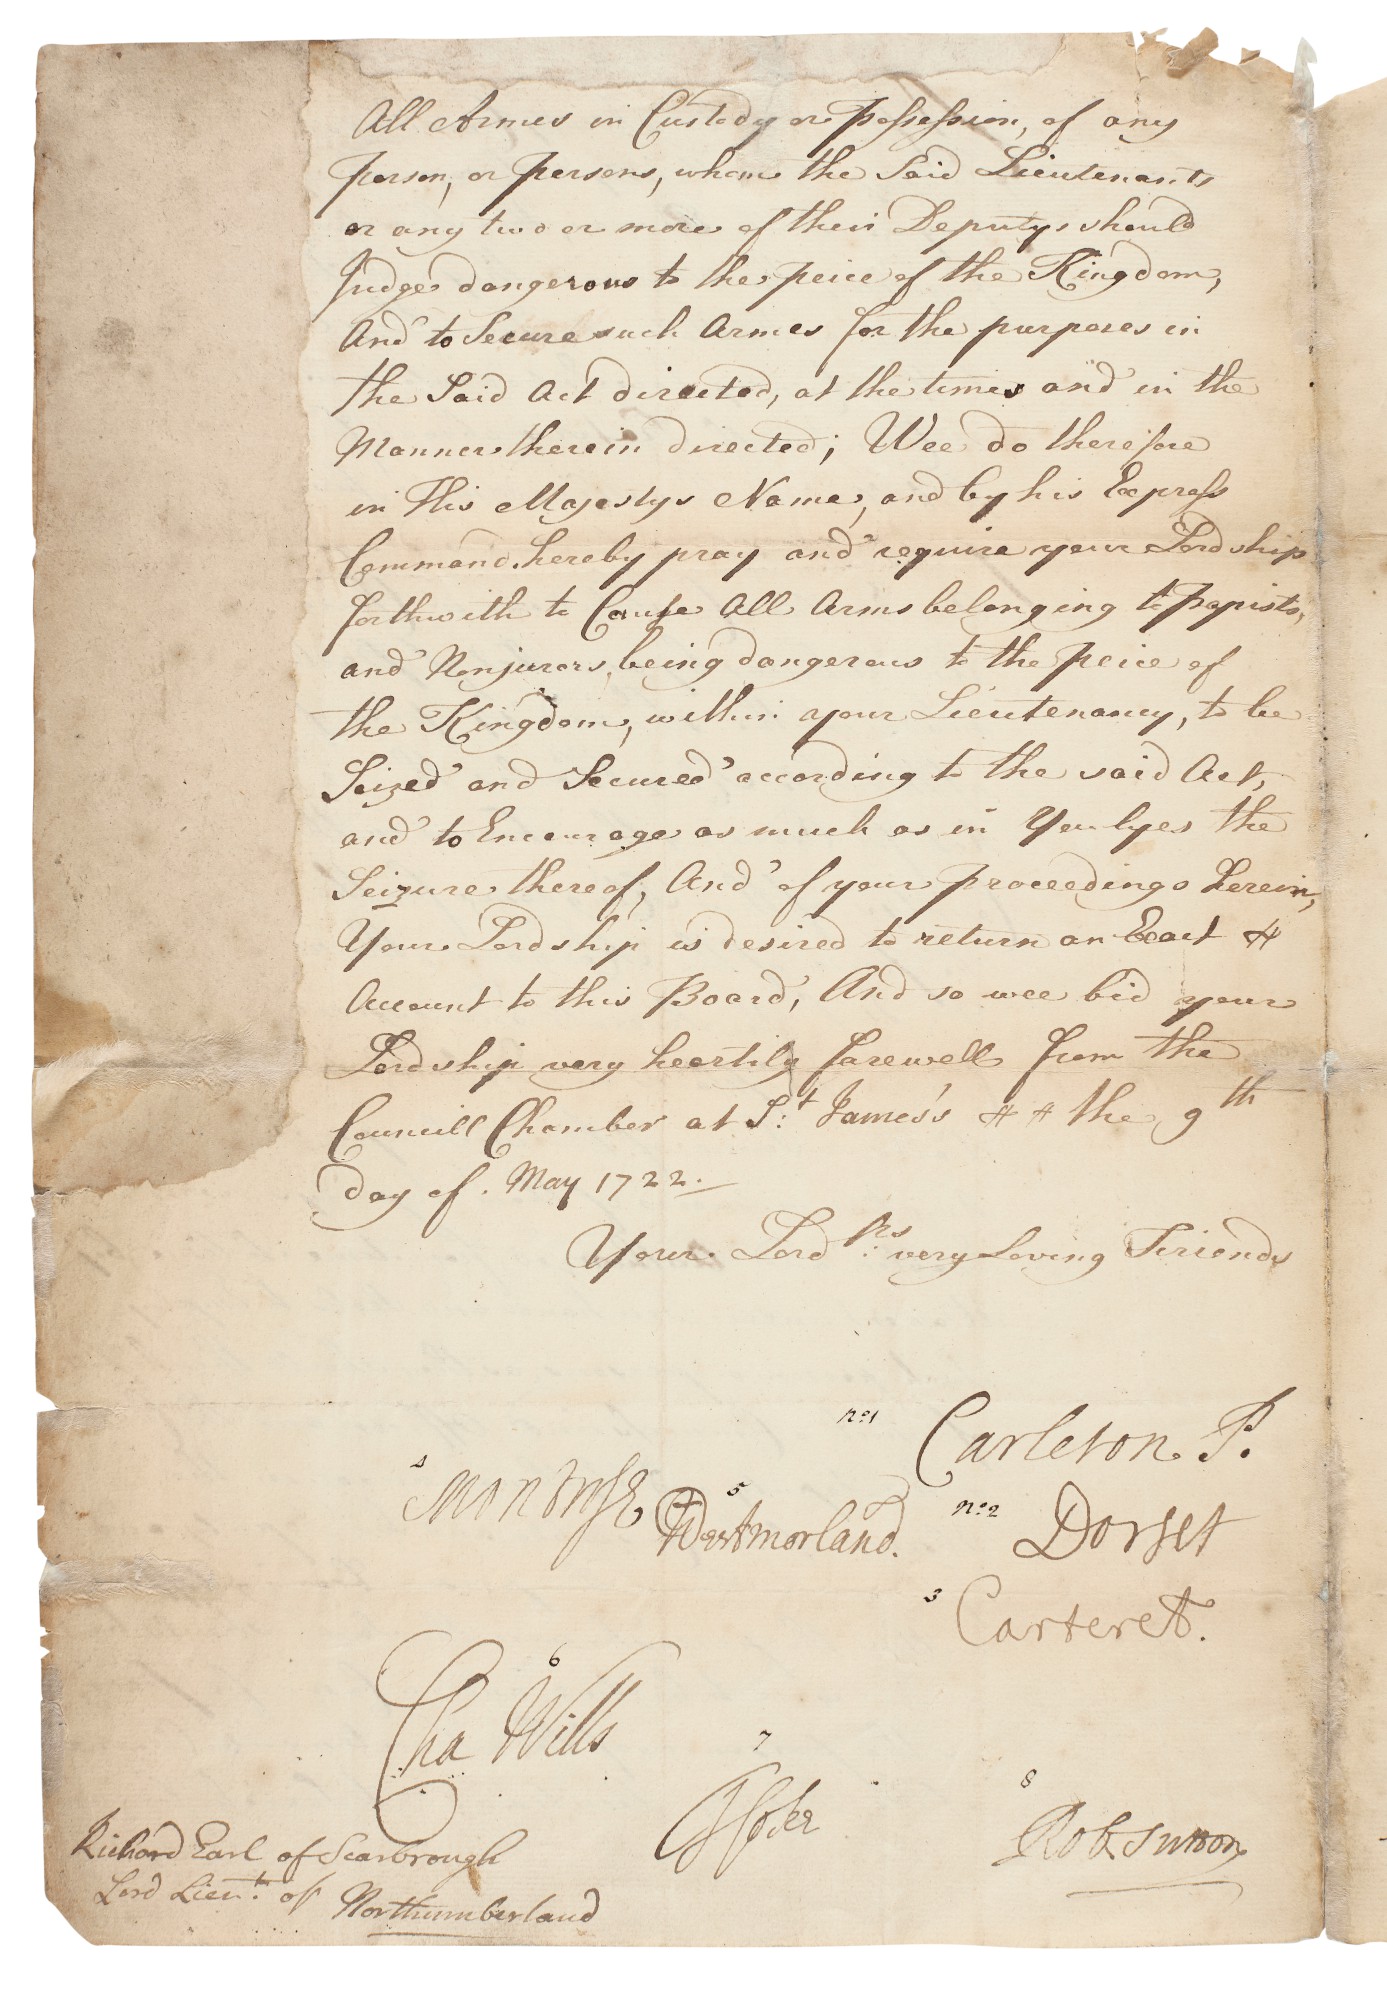 All Armes in Custody or possession, of any
person, or persons, whom the Said Lieutenants
or any two or more of their Deputys should
Judge dangerous to the peice of the Kingdom,
And to Secure such Armes for the purposes in
the Said Act directed, at the times and in the
Manner therein directed; Wee do therefore
in His Majestys Name, and by his Express
Command, hereby pray and require your Lordship
forthwith to Cause All Arms belonging to Papists,
and Nonjurors, being dangerous to the peice of
the Kingdom, within your Lieutenancy, to be
Seized and Secured according to the said Act,
and to Encourage as much as in You lyes the
Seizure thereof, And of your proceedings herein,
Your Lordship is desired to return an Exact
Account to this Board, And so wee bid your
Lordship very heartily farewell from the
Councill Chamber at St: James's the 9th
day of May 1722.
Your Lordps: very Loving Friends
no:1 Carleton P.
4 Montrose
5 Westmorland.
no:2 Dorset
3 Carteret.
6 Cha Wills
7
8 Rob Sutton
Richard Earl of Scarbrough
Lord Lieut: of Northumberland